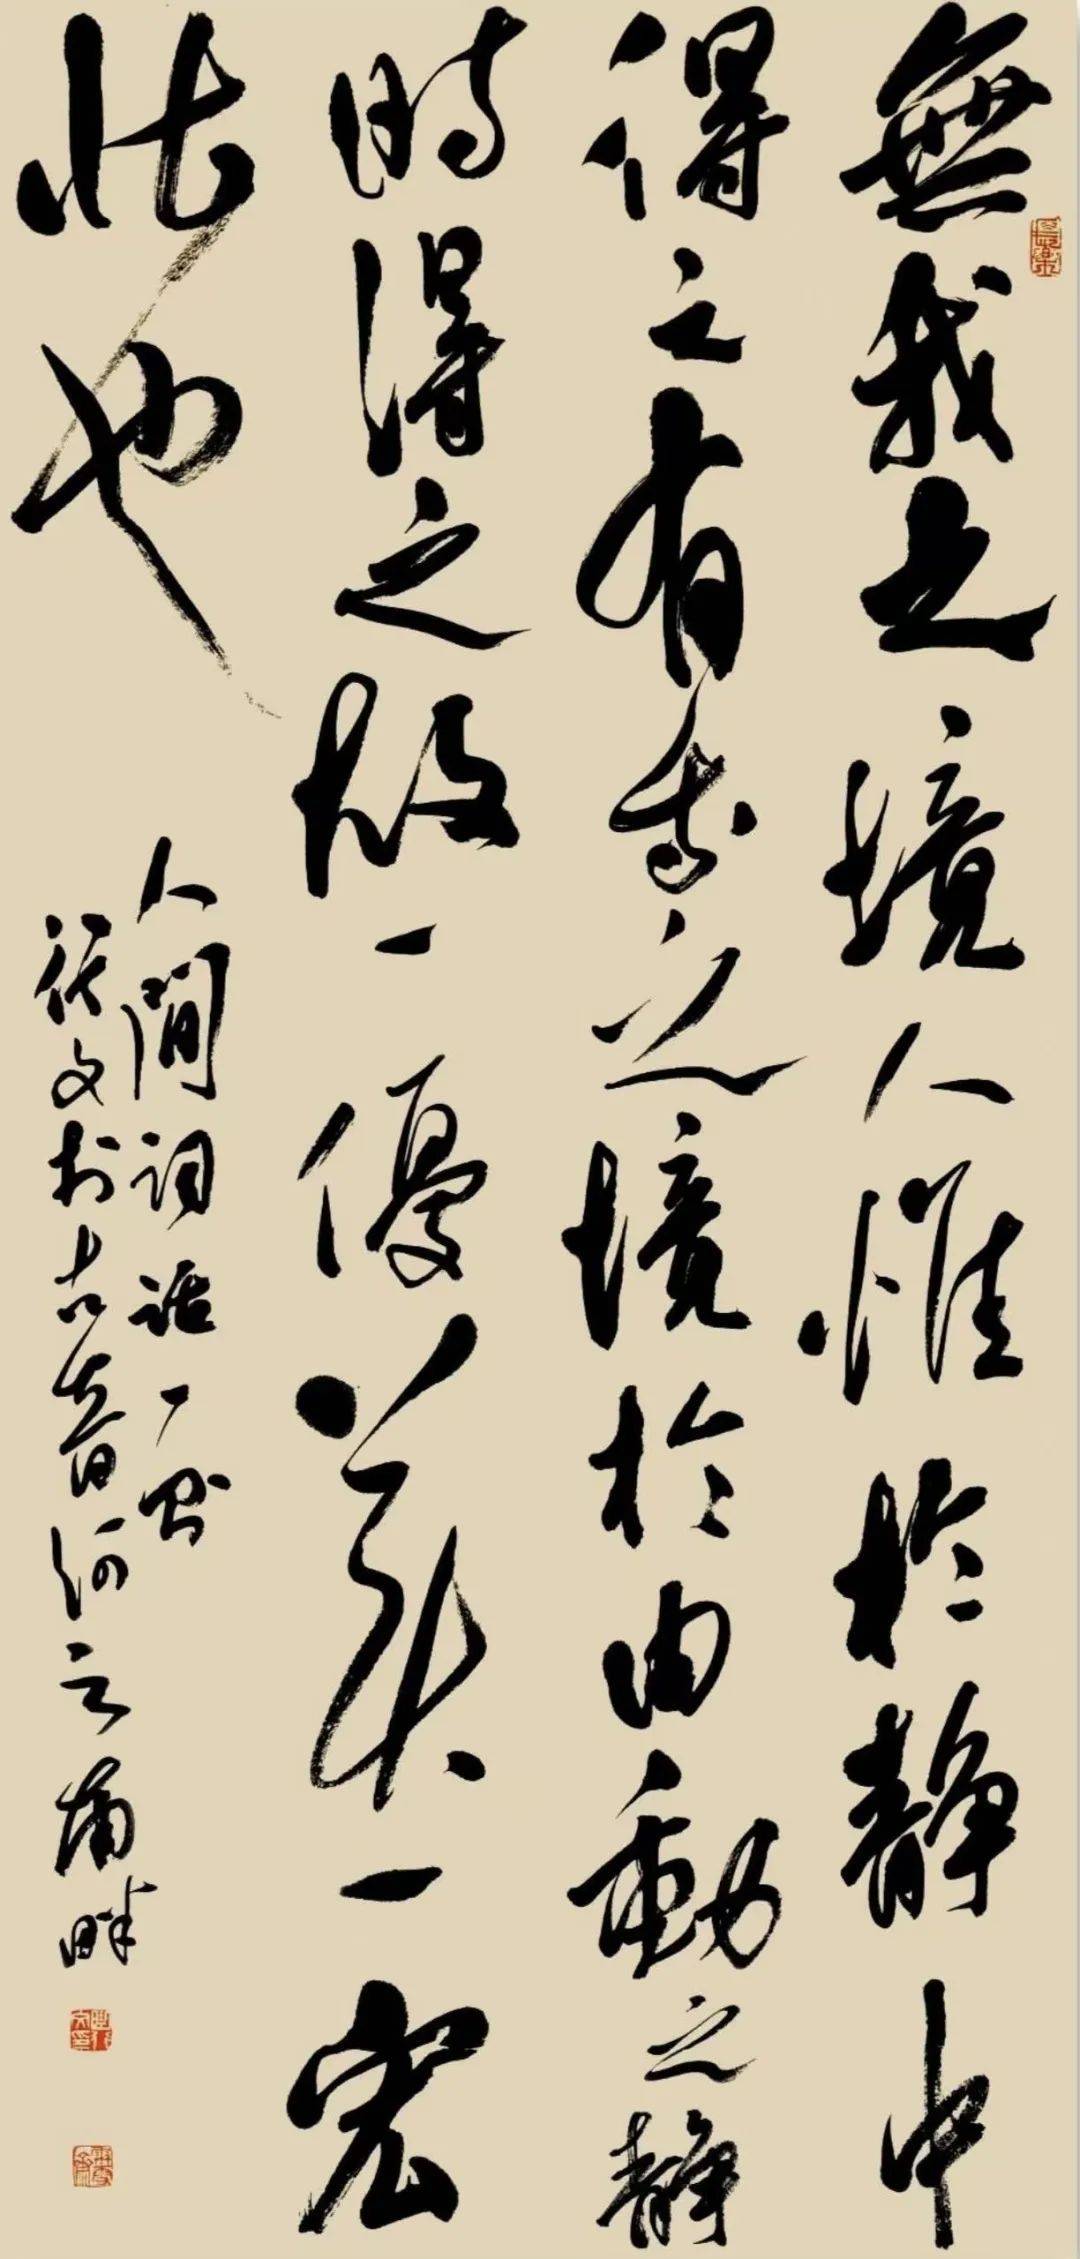 無我之境人惟於静中
得之有我之境於由動之静
時得之故一優美一宏
壮也
人間詞話一則
文於古晉河之畔